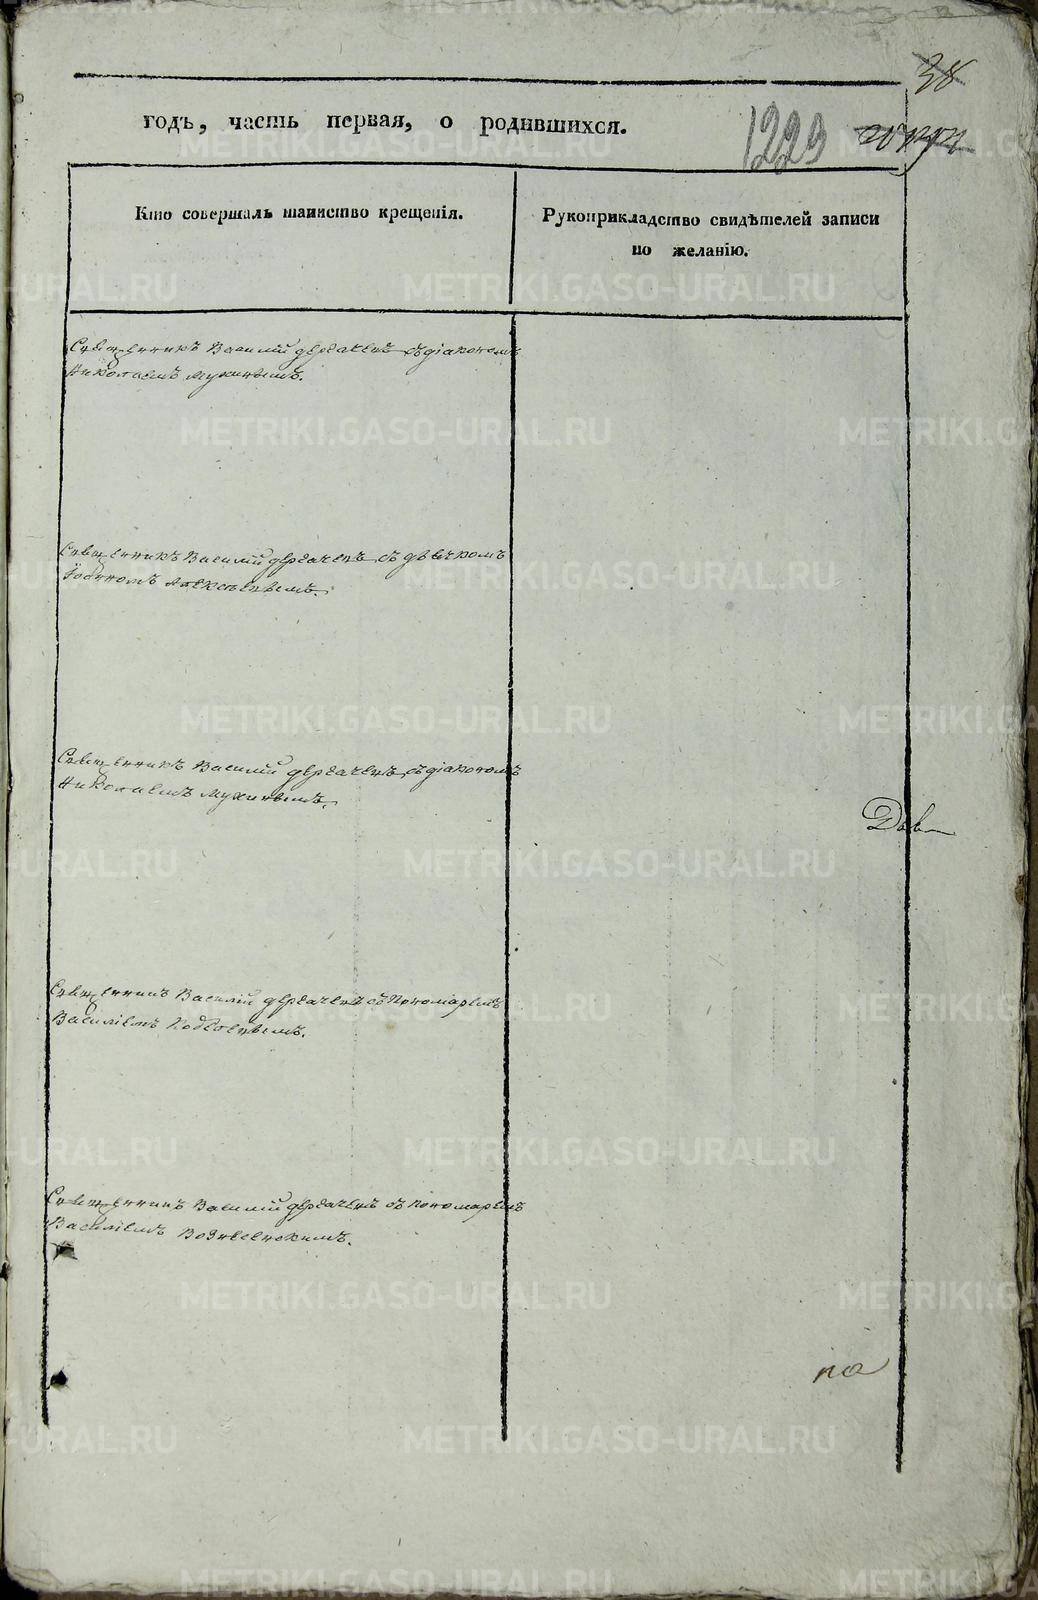 38
годъ, часть первая, о родившихся.
1229
Кто совершалъ таинство крещенія.
Рукоприкладство свидѣтелей записи
по желанію.
Священникъ Василій Дерзачевъ съ діакономъ
Николаемъ Мухинымъ.
Священникъ Василій Дерзачевъ съ дьячкомъ
Іоанномъ Алексѣевымъ.
Священникъ Василій Дерзачевъ съ діакономъ
Николаемъ Мухинымъ.
Священникъ Василій Дерзачевъ съ пономаремъ
Василіемъ
Священникъ Василій Дерзачевъ съ пономаремъ
Василіемъ Вознесенскимъ.
по
METRIKI.GASO-URAL.RU